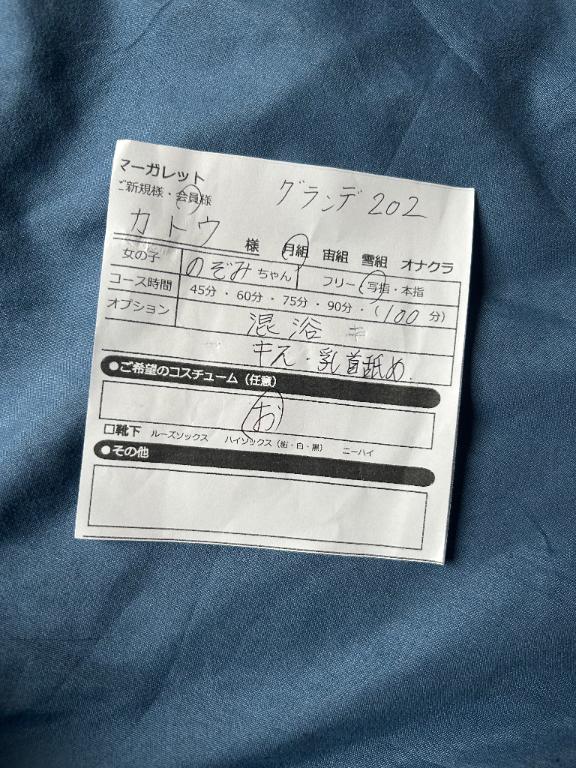 マーガレット
グランデ 202
ご新規様・会員様
カトウ 様 月組 宙組 雪組 オナクラ
女の子 のぞみちゃん フリー・写指・本指
コース時間 45分・60分・75分・90分・(100分)
オプション 混浴
キス・乳首舐め
●ご希望のコスチューム（任意）
お
□靴下 ルーズソックス ハイソックス（紺・白・黒） ニーハイ
●その他